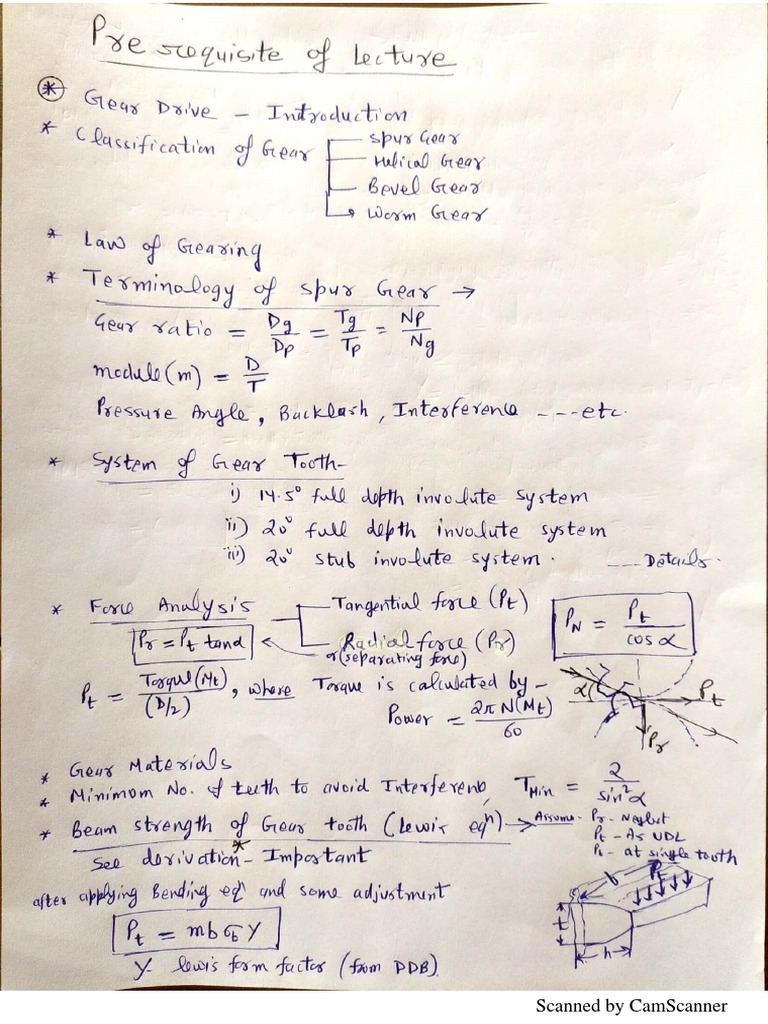 Pre requisite of Lecture
* Gear Drive - Introduction
* Classification of Gear
Spur Gear
Helical Gear
Bevel Gear
Worm Gear
* Law of Gearing
* Terminology of Spur Gear →
Gear ratio = Dg/Dp = Tg/Tp = Np/Ng
module(m) = D/T
Pressure Angle, Backlash, Interference ---etc.
* System of Gear Tooth-
i) 14.5° full depth involute system
ii) 20° full depth involute system
iii) 20° stub involute system. ---Details.
* Force Analysis
Tangential force (Pt)
Radial force (Pr)
or (separating force)
Pr = Pt tanα
PN = Pt/cosα
Pt = Torque(Mt)/(D/2), where Torque is calculated by -
Power = 2πN(Mt)/60
α
Pt
Pr
* Gear Materials
* Minimum No. of teeth to avoid Interferenc, TMin = 2/sin²α
* Beam strength of Gear tooth (Lewis eqn) → Assume- Pr - Neglect
Pt - As UDL
Pt - at single tooth
See derivation* - Important
after applying Bending eqn and some adjustment
Pt = mbσbY
Y- lewis form factor (from DDB)
b
Pt
t
h
Scanned by CamScanner